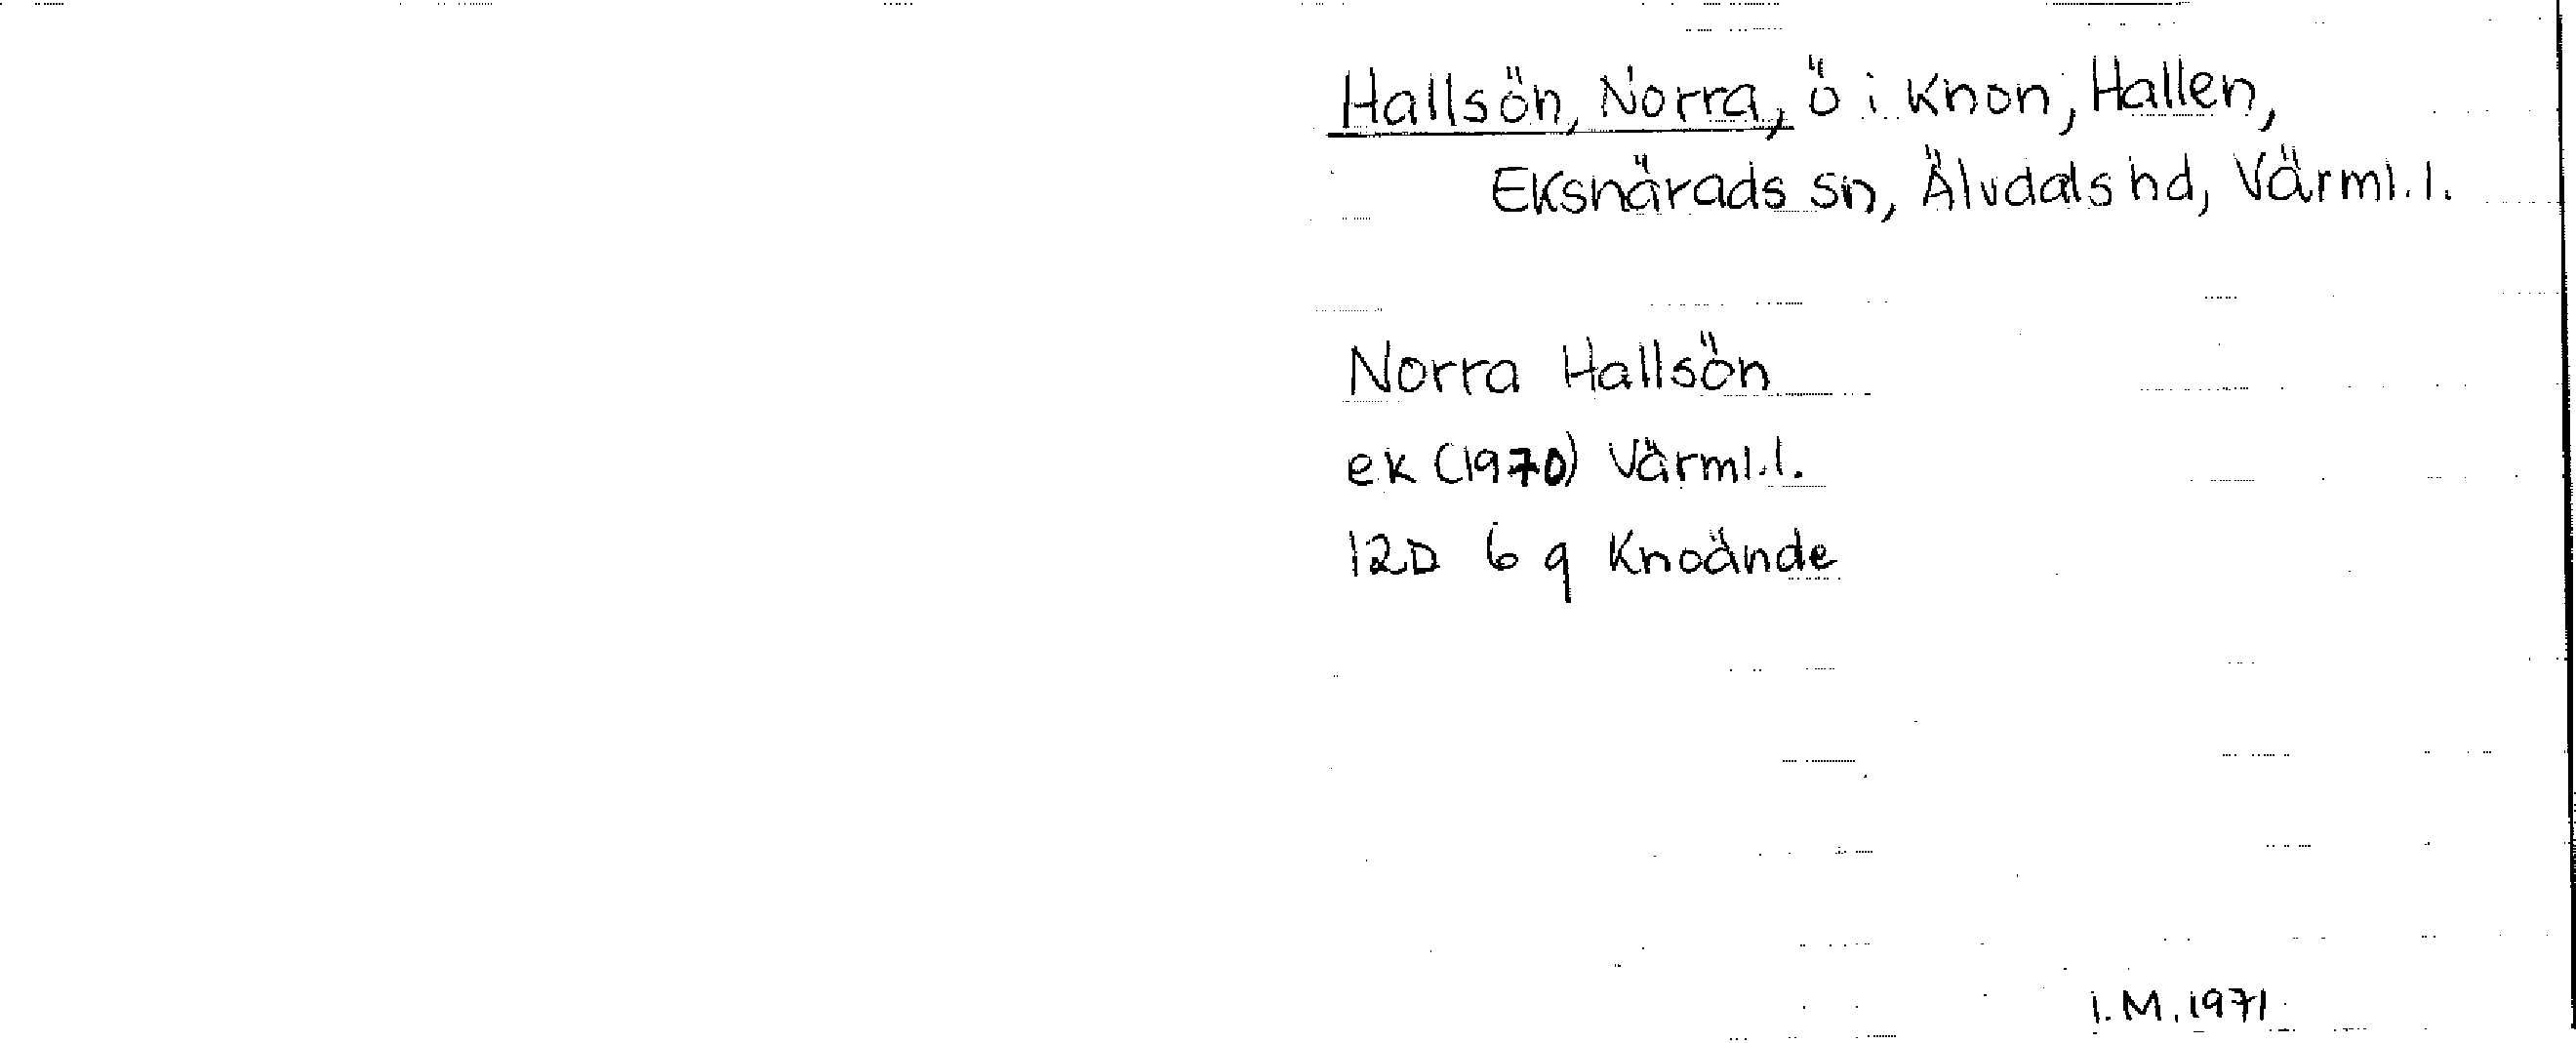 Hallsön, Norra, ö i Knon, Hallen,
Eksnärads sn, Älvdals hd, Värml.l.
Norra Hallsön
ek (1970) Värml.l.
12D 6 q Knoände
i.M. 1971